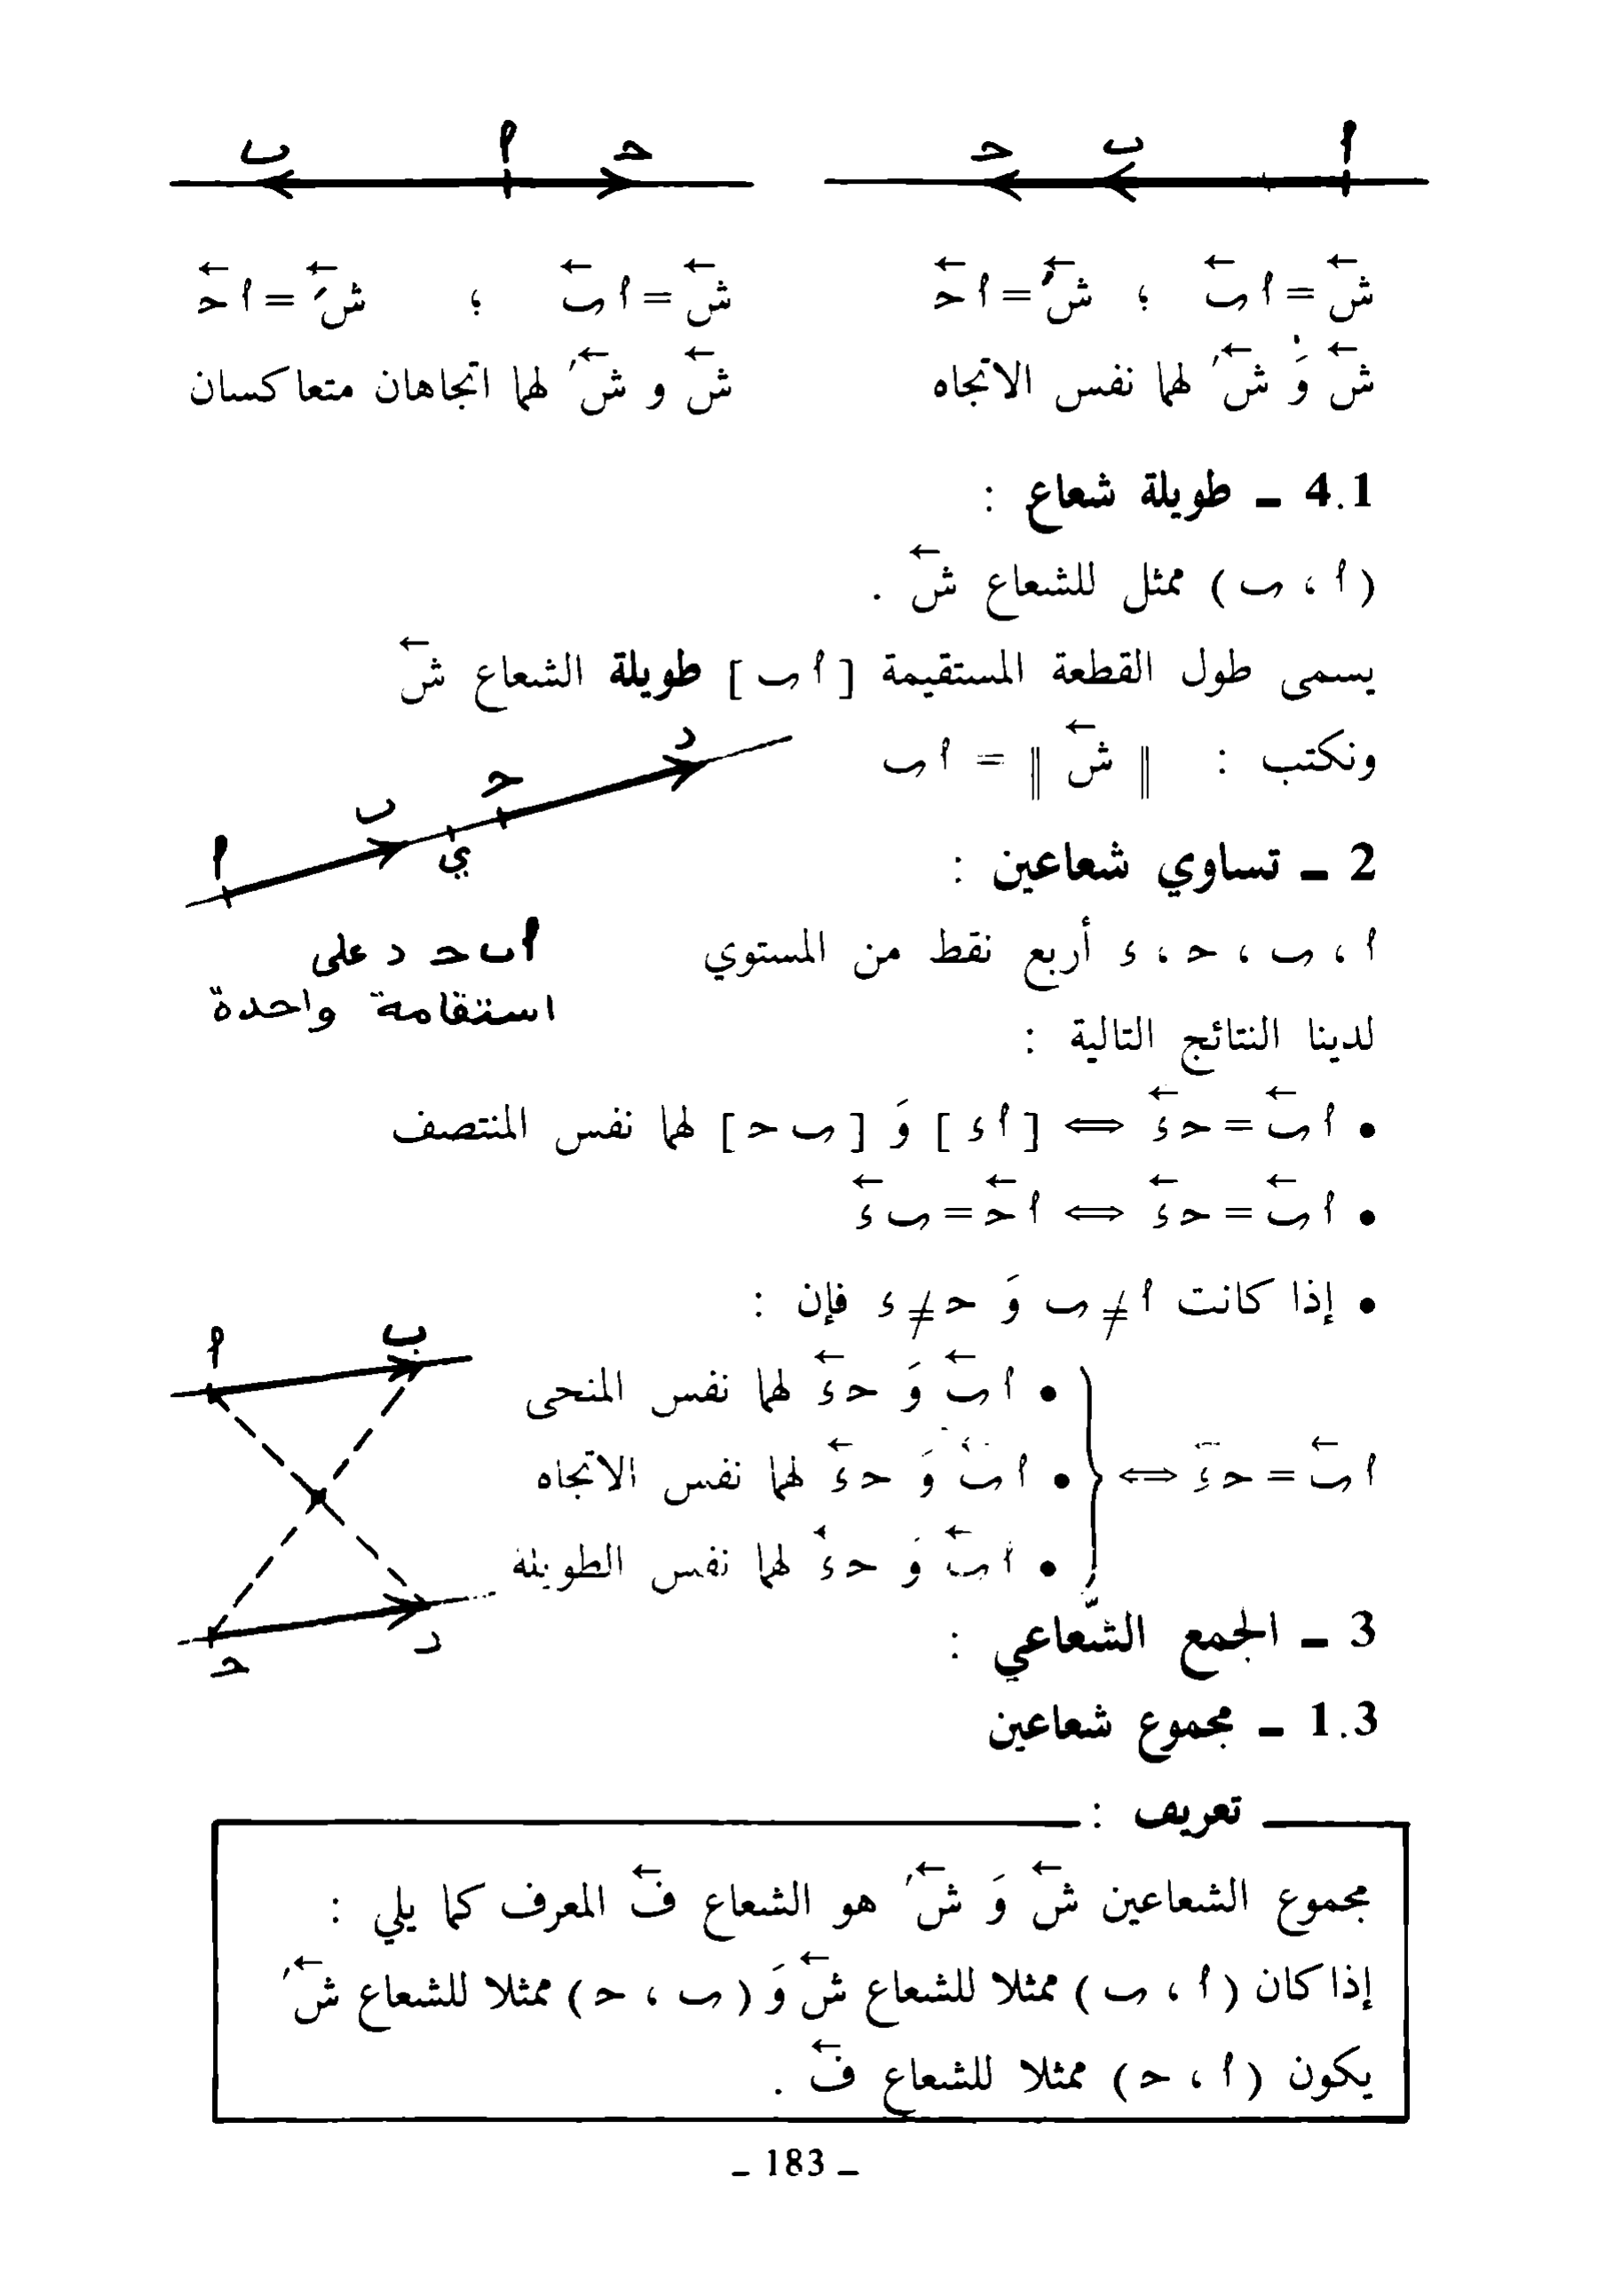 ا ب ح
ح ا ب
ش = ا ب ؛ ش' = ا ح
ش = ا ب ؛ ش' = ا ح
ش وَ ش' لهما نفس الاتجاه
ش و ش' لهما اتجاهان متعاكسان
4.1 ــ طويلة شعاع :
( ا ، ب ) ممثل للشعاع ش .
يسمى طول القطعة المستقيمة [ ا ب ] طويلة الشعاع ش
ونكتب : ‖ ش ‖ = ا ب
ا ب ي ح د
2 ــ تساوي شعاعين :
ا ، ب ، ح ، ء أربع نقط من المستوي
ا ب ح د على
استقامة واحدة
لدينا النتائج التالية :
• ا ب = ح ء ⇔ [ ا ء ] وَ [ ب ح ] لهما نفس المنتصف
• ا ب = ح ء ⇔ ا ح = ب ء
• إذا كانت ا ≠ ب وَ ح ≠ ء فإن :
ا ب = ح ء ⇔ {
• ا ب وَ ح ء لهما نفس المنحى
• ا ب وَ ح ء لهما نفس الاتجاه
• ا ب وَ ح ء لهما نفس الطويلة
ا ب
ح د
3 ــ الجمع الشّعاعي :
1.3 ــ مجموع شعاعين
تعريف :
مجموع الشعاعين ش وَ ش' هو الشعاع ف المعرف كما يلي :
إذا كان ( ا ، ب ) ممثلا للشعاع ش وَ ( ب ، ح ) ممثلا للشعاع ش'
يكون ( ا ، ح ) ممثلا للشعاع ف .
ــ 183 ــ